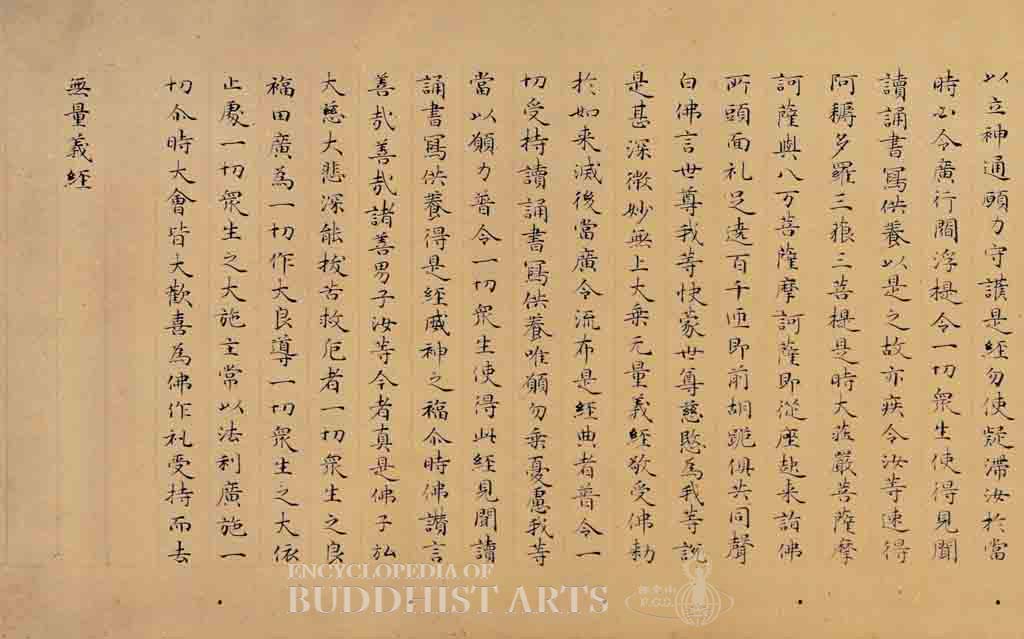 以立神通願力守護是經勿使疑滯汝於當
時必令廣行閻浮提令一切衆生使得見聞
讀誦書寫供養以是之故亦疾令汝等速得
阿耨多羅三藐三菩提是時大莊嚴菩薩摩
訶薩與八万菩薩摩訶薩即從座起来詣佛
所頭面礼足遶百千匝即前胡跪俱共同聲
白佛言世尊我等快蒙世尊慈愍為我等說
是甚深微妙無上大乗无量義経敬受佛勅
於如来滅後當廣令流布是経典者普令一
切受持讀誦書寫供養唯願勿垂憂慮我等
當以願力普令一切衆生使得此経見聞讀
誦書寫供養得是経威神之福尒時佛讃言
善哉善哉諸善男子汝等今者真是佛子弘
大慈大悲深能拔苦救厄者一切衆生之良
福田廣為一切作大良導一切衆生之大依
止處一切衆生之大施主常以法利廣施一
切尒時大會皆大歡喜為佛作礼受持而去
無量義経
ENCYCLOPEDIA OF
BUDDHIST ARTS
F.G.S.